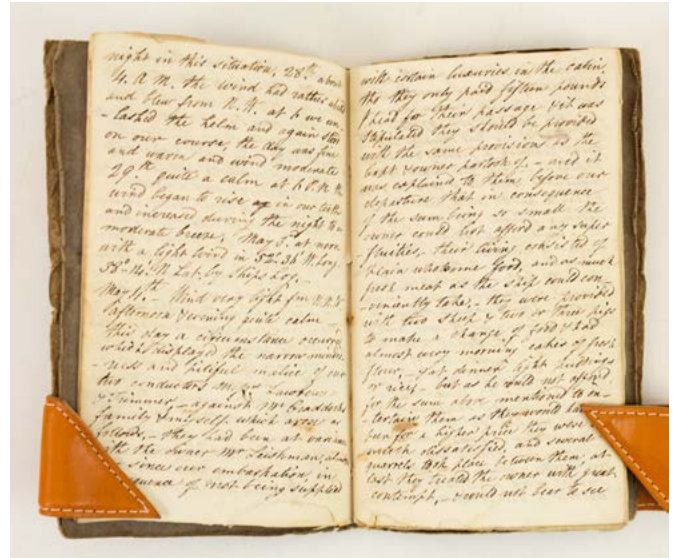 night in this situation, 28th about
4. A.M. the wind had rather
and blew from N.W. at 6 we un-
-lashed the helm and again stood
on our course, the day was fine
and warm and wind moderate
29th quite a calm at 6 P.M. the
wind began to rise in our teeth
and increased during the night to a
moderate breeze, May 3d. at noon
with a light wind in 52°.36' W. Long.
58°. 14. N. Lat. by Ships Log.
May 4th. Wind very light fm N.N.E
afternoon & evening quite calm
This day a circumstance occurred
which displayed the narrow minded
-ness and pitiful malice of our
two conductors M.
& Rimmer, against Mr Braddocks
family & myself. which arose as
follows, they had been at variance
with the owner Mr Leishman, almost
since our embarkation, in
of not being supplied
with certain luxuries in the cabin.
tho they only paid fifteen pounds
p head for their passage & it was
stipulated they should be provided
with the same provisions as the
Capt & owner partook of, - and it
was explained to them before our
departure that in consequence
of the sum being so small the
owner could not afford any super
-fluities, - their living consisted of
plain wholesome food, and as much
fresh meat as the ship could con-
-veniently take, - they were provided
with two sheep & two or three pigs
to make a change of food & had
almost every morning cakes of fresh
flour, - & at dinner light puddings
or rice, - but as he could not afford
for the sum above mentioned to en-
-tertain them as they would have
been for a higher price they were
much dissatisfied, and several
quarrels took place between them, at
last they treated the owner with great
contempt, - & could not bear to see